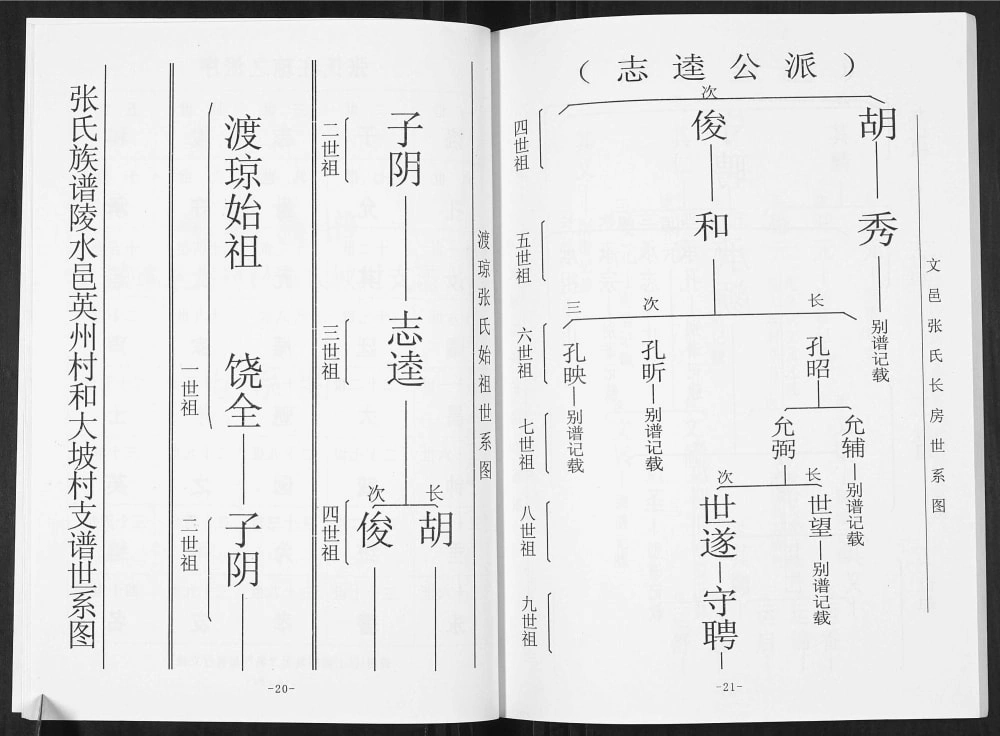 张氏族谱陵水邑英州村和大坡村支谱世系图
渡琼始祖
一世祖
饶全
二世祖
子阴
-20-
二世祖
子阴
三世祖
志逵
四世祖
次
俊
长
胡
渡琼张氏始祖世系图
(志逵公派)
文邑张氏长房世系图
四世祖
次
俊
胡
五世祖
和
秀
别谱记载
六世祖
三
孔映
别谱记载
次
孔昕
别谱记载
长
孔昭
七世祖
允弼
允辅
别谱记载
八世祖
次
世遂
长
世望
别谱记载
九世祖
守聘
-21-